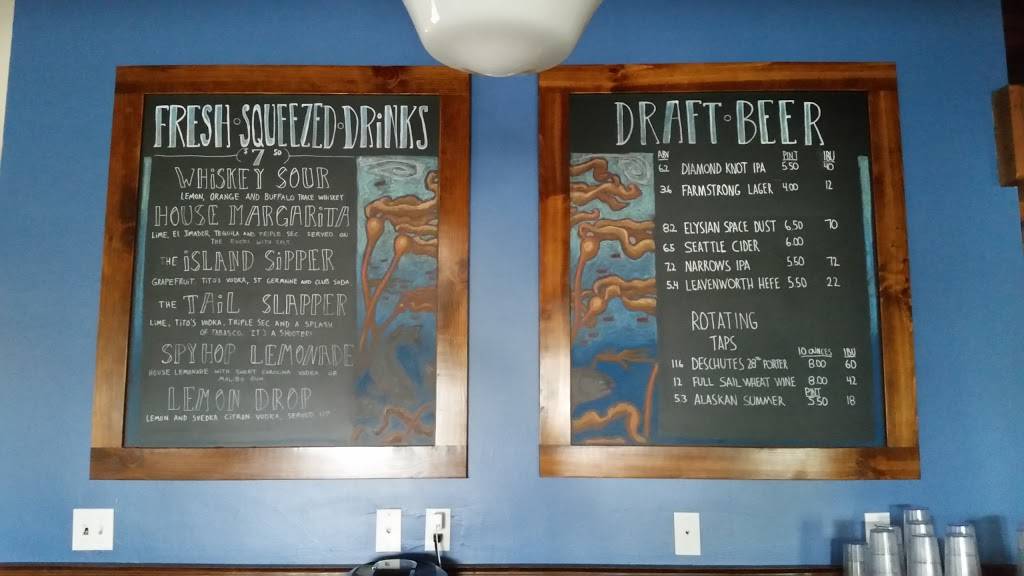 FRESH·SQUEEZED·DRINKS
$7.50
WHISKEY SOUR
LEMON, ORANGE AND BUFFALO TRACE WHISKEY
HOUSE MARGARITA
LIME, EL JIMADOR TEQUILA AND TRIPLE SEC. SERVED ON
THE ROCKS WITH SALT
THE ISLAND SIPPER
GRAPEFRUIT, TITO'S VODKA, ST GERMAINE AND CLUB SODA
THE TAIL SLAPPER
LIME, TITO'S VODKA, TRIPLE SEC AND A SPLASH
OF TABASCO. IT'S A SHOOTER!
SPYHOP LEMONADE
HOUSE LEMONADE WITH SWEET CAROLINA VODKA OR
MALIBU RUM
LEMON DROP
LEMON AND SVEDKA CITRON VODKA, SERVED UP
DRAFT·BEER
ABV PINT IBU
6.2 DIAMOND KNOT IPA 5.50 40
3.6 FARMSTRONG LAGER 4.00 12
8.2 ELYSIAN SPACE DUST 6.50 70
6.5 SEATTLE CIDER 6.00
7.2 NARROWS IPA 5.50 72
5.4 LEAVENWORTH HEFE 5.50 22
ROTATING
TAPS
10 OUNCES IBU
11.6 DESCHUTES 28TH PORTER 8.00 60
12 FULL SAIL WHEAT WINE 8.00 42
PINT
5.3 ALASKAN SUMMER 5.50 18